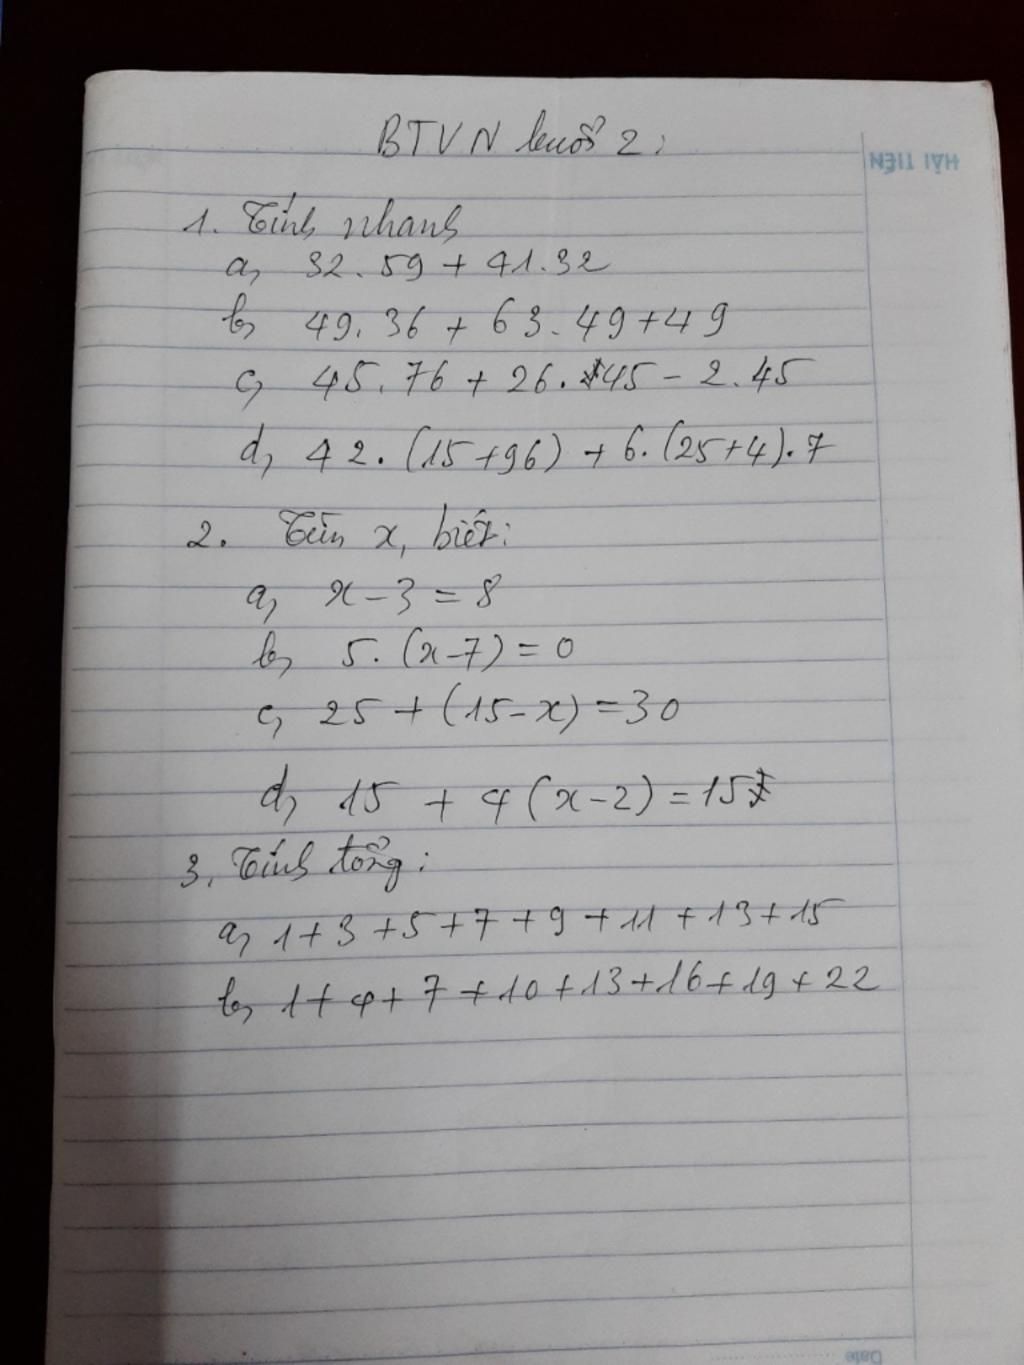 BTVN buổi 2:
HẢI TIẾN
1. Tính nhanh
a, 32.59 + 41.32
b, 49.36 + 63.49 + 49
c, 45.76 + 26.45 - 2.45
d, 42.(15+96) + 6.(25+4).7
2. Tìm x, biết:
a, x - 3 = 8
b, 5.(x-7) = 0
c, 25 + (15-x) = 30
d, 15 + 4(x-2) = 15
3. Tính tổng:
a, 1+3+5+7+9+11+13+15
b, 1+4+7+10+13+16+19+22
Date